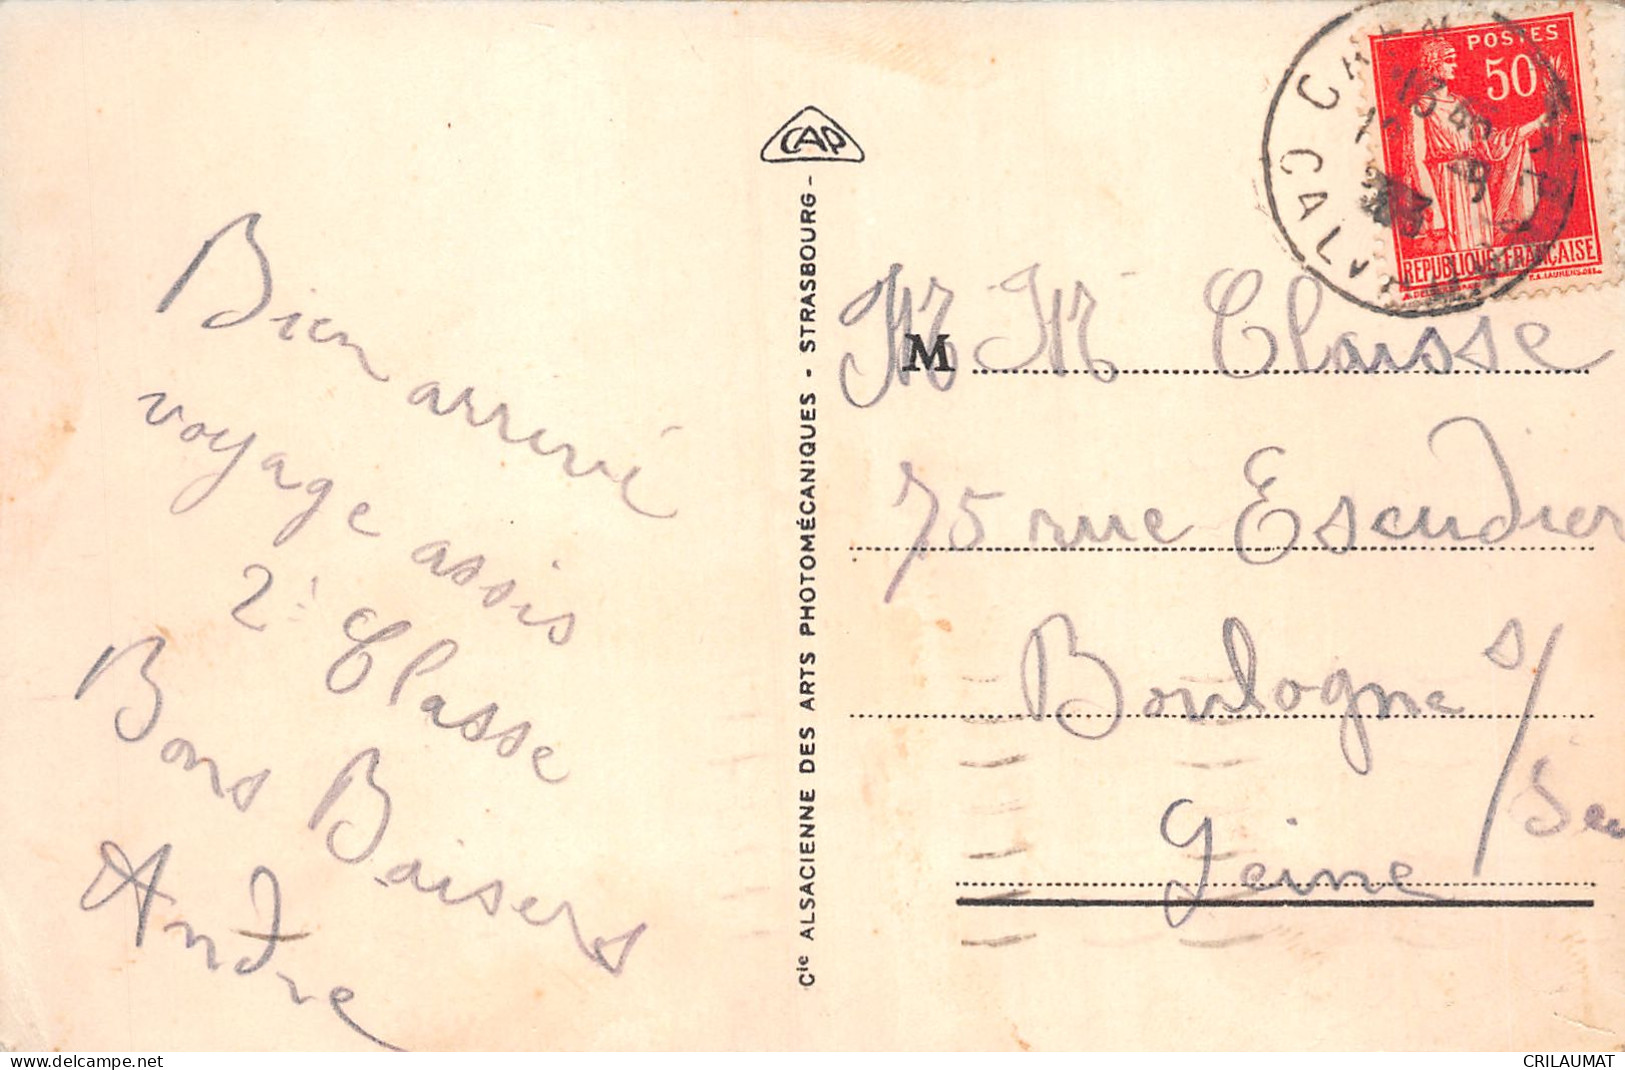 Bien arrivé
voyage assis
2è Classe
Bons Baisers
Andre
CAP
Cie ALSACIENNE DES ARTS PHOTOMÉCANIQUES - STRASBOURG -
POSTES
50
REPUBLIQUE FRANÇAISE
CAEN
CALVADOS
M
Mr Mr Classe
75 rue Escudier
Boulogne s/
Seine
www.delcampe.net
CRILAUMAT